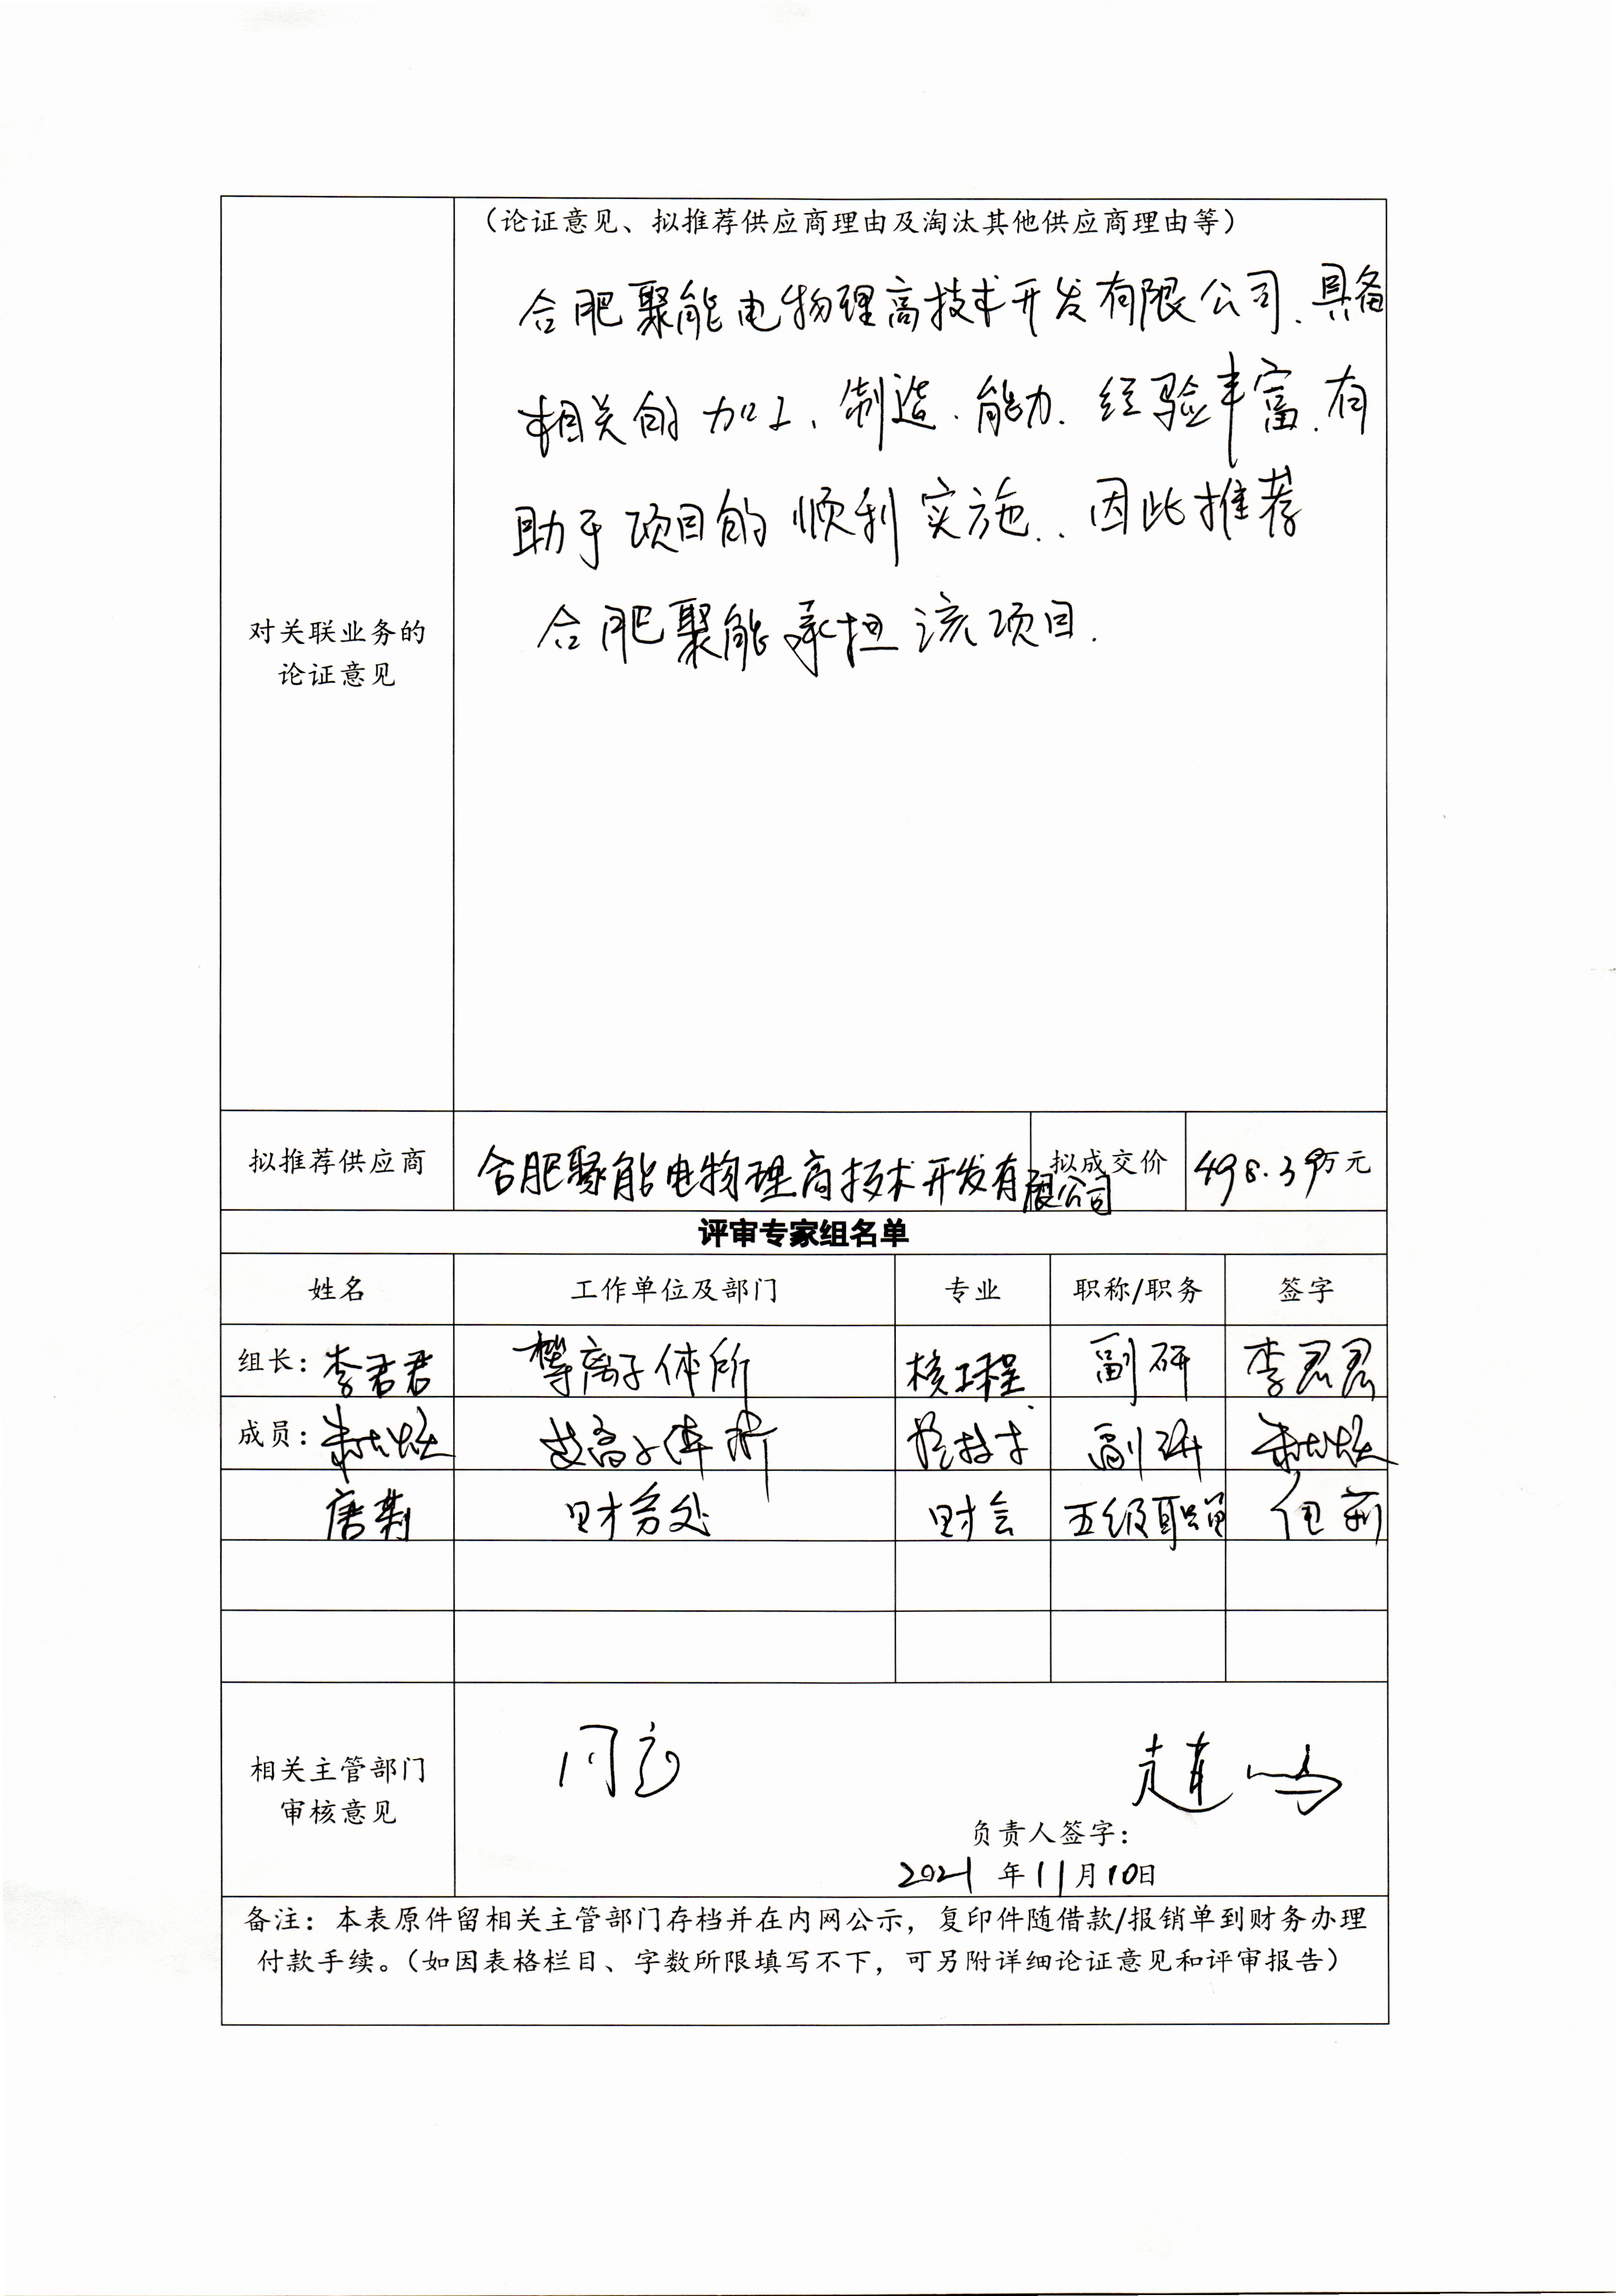 （论证意见、拟推荐供应商理由及淘汰其他供应商理由等）
合肥聚能电物理高技术开发有限公司、具备
相关的加工、制造、能力、经验丰富、有
助于项目的顺利实施．．因此推荐
合肥聚能承担该项目．
对关联业务的
论证意见
拟推荐供应商 合肥聚能电物理高技术开发有限公司 拟成交价 498.39万元
评审专家组名单
姓名 工作单位及部门 专业 职称/职务 签字
组长：李君君 等离子体所 核工程 副研 李君君
成员： 等离子体所 副研
唐莉 财务处 财会 五级职员 唐莉
相关主管部门
审核意见
同意
赵
负责人签字：
2021年11月10日
备注：本表原件留相关主管部门存档并在内网公示，复印件随借款/报销单到财务办理
付款手续。（如因表格栏目、字数所限填写不下，可另附详细论证意见和评审报告）